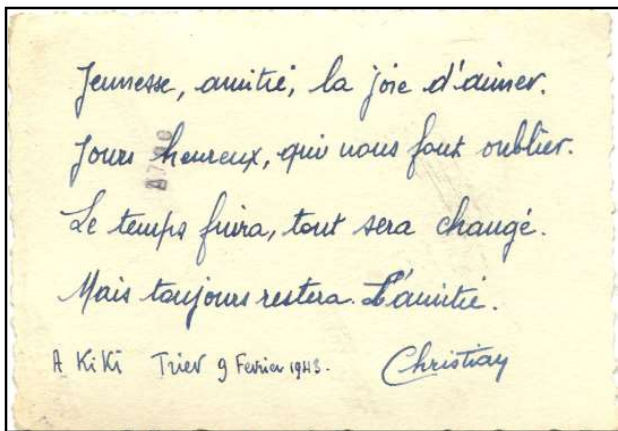 Jeunesse, amitié, la joie d'aimer.
Jours heureux, qui nous font oublier.
Le temps fuira, tout sera changé.
Mais toujours restera. L'amitié.
A KiKi Trier 9 Février 1943. Christian